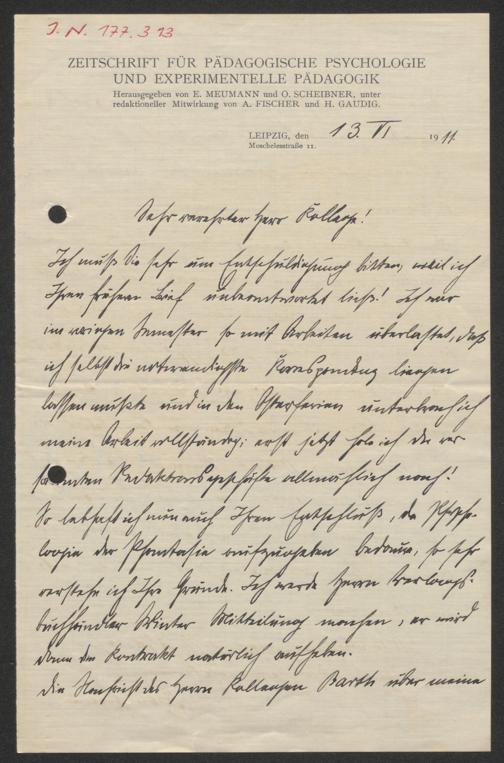 J. N. 177.313
ZEITSCHRIFT FÜR PÄDAGOGISCHE PSYCHOLOGIE
UND EXPERIMENTELLE PÄDAGOGIK
Herausgegeben von E. MEUMANN und O. SCHEIBNER, unter
redaktioneller Mitwirkung von A. FISCHER und H. GAUDIG.
LEIPZIG, den 13. VI 1911
Moschelesstraße 11.
Sehr verehrter Herr Kollege!
Ich muß Sie sehr um Entschuldigung bitten, weil ich
Ihren frühern Brief unbeantwortet ließ! Ich war
im vorigen Semester so mit Arbeiten überlastet, daß
ich selbst die notwendigste Korrespondenz liegen
lassen mußte und in den Osterferien unterbrach ich
meine Arbeit vollständig; erst jetzt hole ich die ver
säumten Redaktionsgeschäfte allmählich nach!
So lebhaft ich nun auch Ihren Entschluß, die Psycho-
logie der Phantasie aufzugeben bedaure, so sehr
verstehe ich Ihre Gründe. Ich werde Herrn Verlags-
buchhändler Winter Mitteilung machen, er wird
dann den Kontrakt natürlich aufheben.
Die Nachricht des Herrn Kollegen Barth über meine